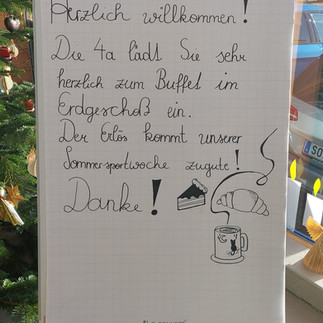 Herzlich willkommen!
Die 4a lädt Sie sehr
herzlich zum Buffet im
Erdgeschoß ein.
Der Erlös kommt unserer
Sommersportwoche zugute!
Danke!
SO